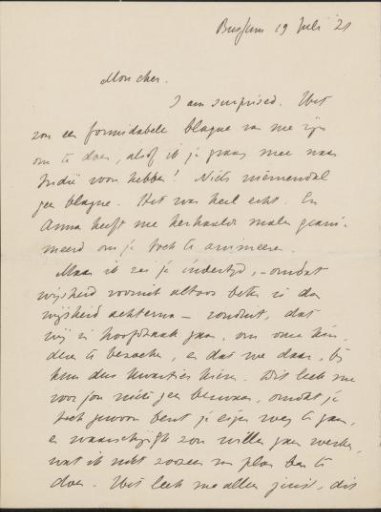 Bussum 19 Juli '21
Mon cher.
I am surprised. Het
zou een formidabele blague van me zijn
om te doen, alsof ik je graag mee naar
Indië zou hebben! Niets niemendal
geen blague. Het was heel echt. En
Anna heeft me herhaalde malen geani-
meerd om je toch te animeeren.
Maar ik zei je indertijd, - omdat
wijsheid vooruit altoos beter is dan
wijsheid achterna - ronduit, dat
wij in hoofdzaak gaan, om onze kin-
deren te bezoeken, en dat we daar, bij
hun dus kwartier hier. Dit leek me
voor jou niet geen bezwaar, omdat je
toch gewoon bent je eigen weg te gaan,
en waarschijnlijk zou willen gaan werken,
wat ik niet zoozeer van plan ben te
doen. Het leek me alleen juist, dit